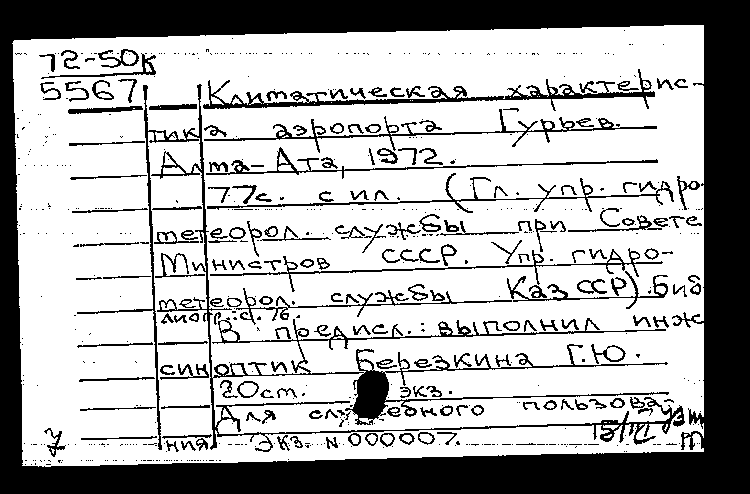 72-50к
5567
Климатическая характерис-
тика аэропорта Гурьев.
Алма-Ата, 1972.
77с. с ил. (Гл. упр. гидро-
метеорол. службы при Совете
Министров СССР. Упр. гидро-
метеорол. службы Каз ССР). Биб
лиогр.: с. 76.
В предисл.: выполнил инж
синоптик Березкина Г.Ю.
20см. экз.
Для служебного пользова-
ния Экз. N 000007.
15/IV